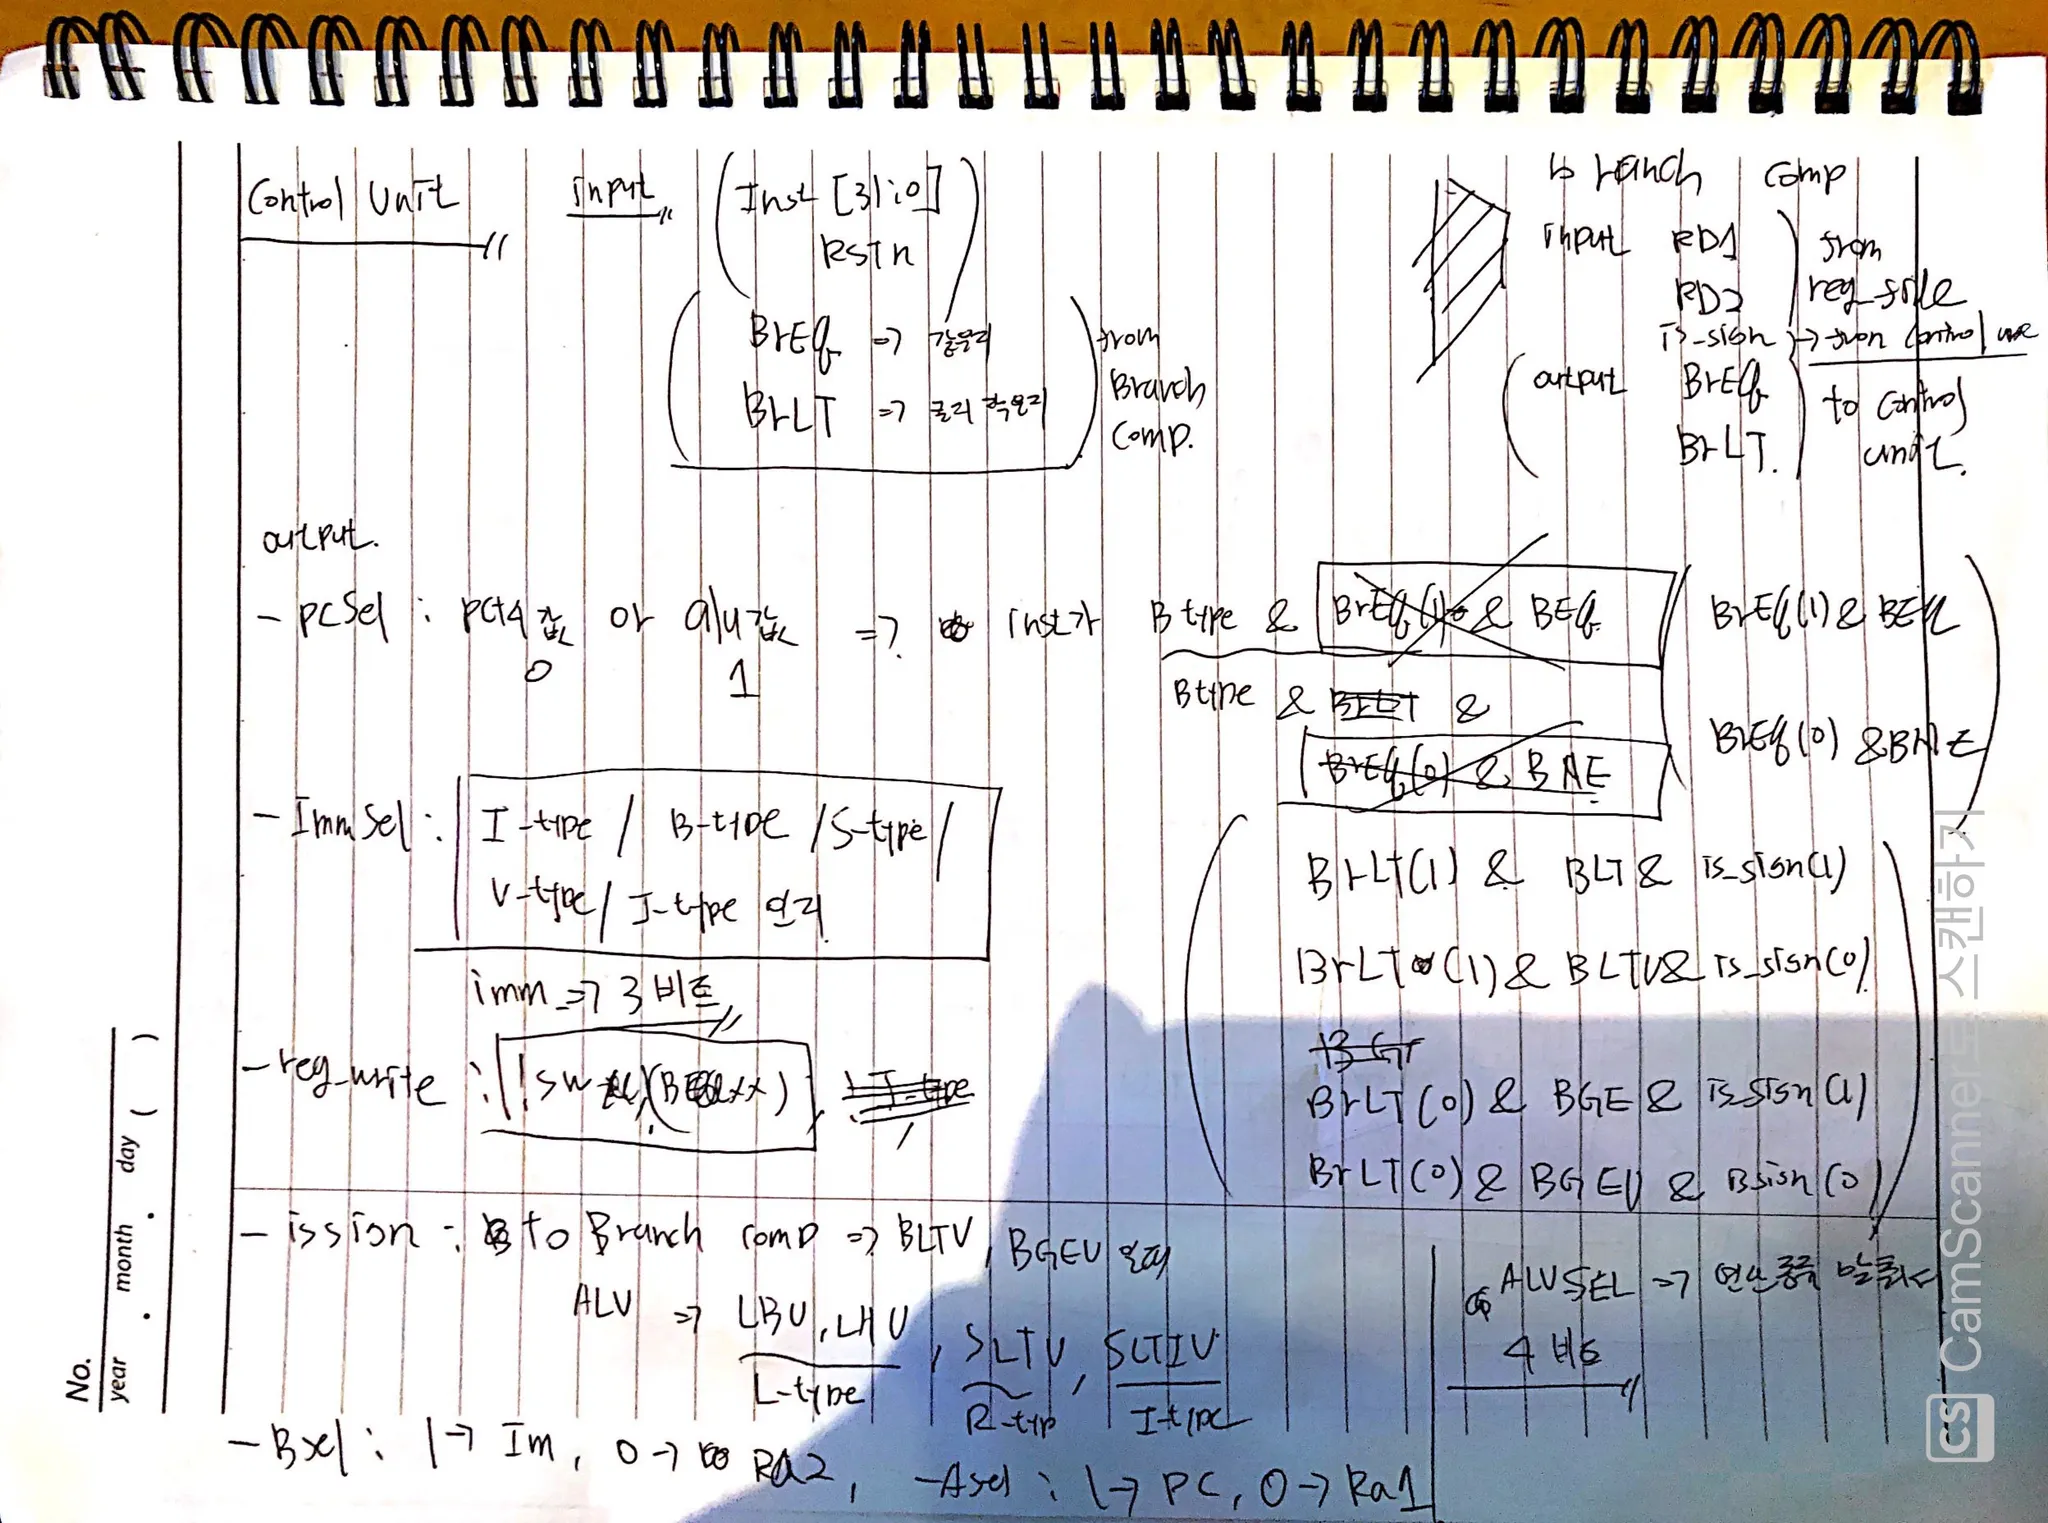 Control Unit
input
Inst [31:0]
RSTn
BrEq => 같은지
BrLT =>
from
Branch
comp.
branch comp
input RD1
RD2
from
reg_file
is_sign -> from control
output BrEq
BrLT.
to control
unit.
output.
- PCSel : PC+4 값 or alu값 => inst가 B type & BrEq(1) & BEq
0 1
BrEq(1) & BEq
B type & BrLT &
BrEq(0) & BNE
BrEq(0) & BNE
- ImmSel : I-type / B-type / S-type /
U-type / J-type 인지
imm => 3 비트
BrLT(1) & BLT & is_sign(1)
BrLT (1) & BLTU & is_sign(0)
BGT
BrLT(0) & BGE & is_sign(1)
BrLT(0) & BGEU & Bsign(0)
- reg_write : ! SW
! I-type
- issign : to Branch comp => BLTU, BGEU 일때
ALU => LBU, LHU, SLTU, SLTIU
L-type R-typ I-type
ALUSEL => 연산종류
4 비트
- Bsel : 1 -> Im, 0 -> Ra2, - Asel : 1 -> PC, 0 -> Ra1
No.
year month day ( )
CS CamScanner로 스캔하기